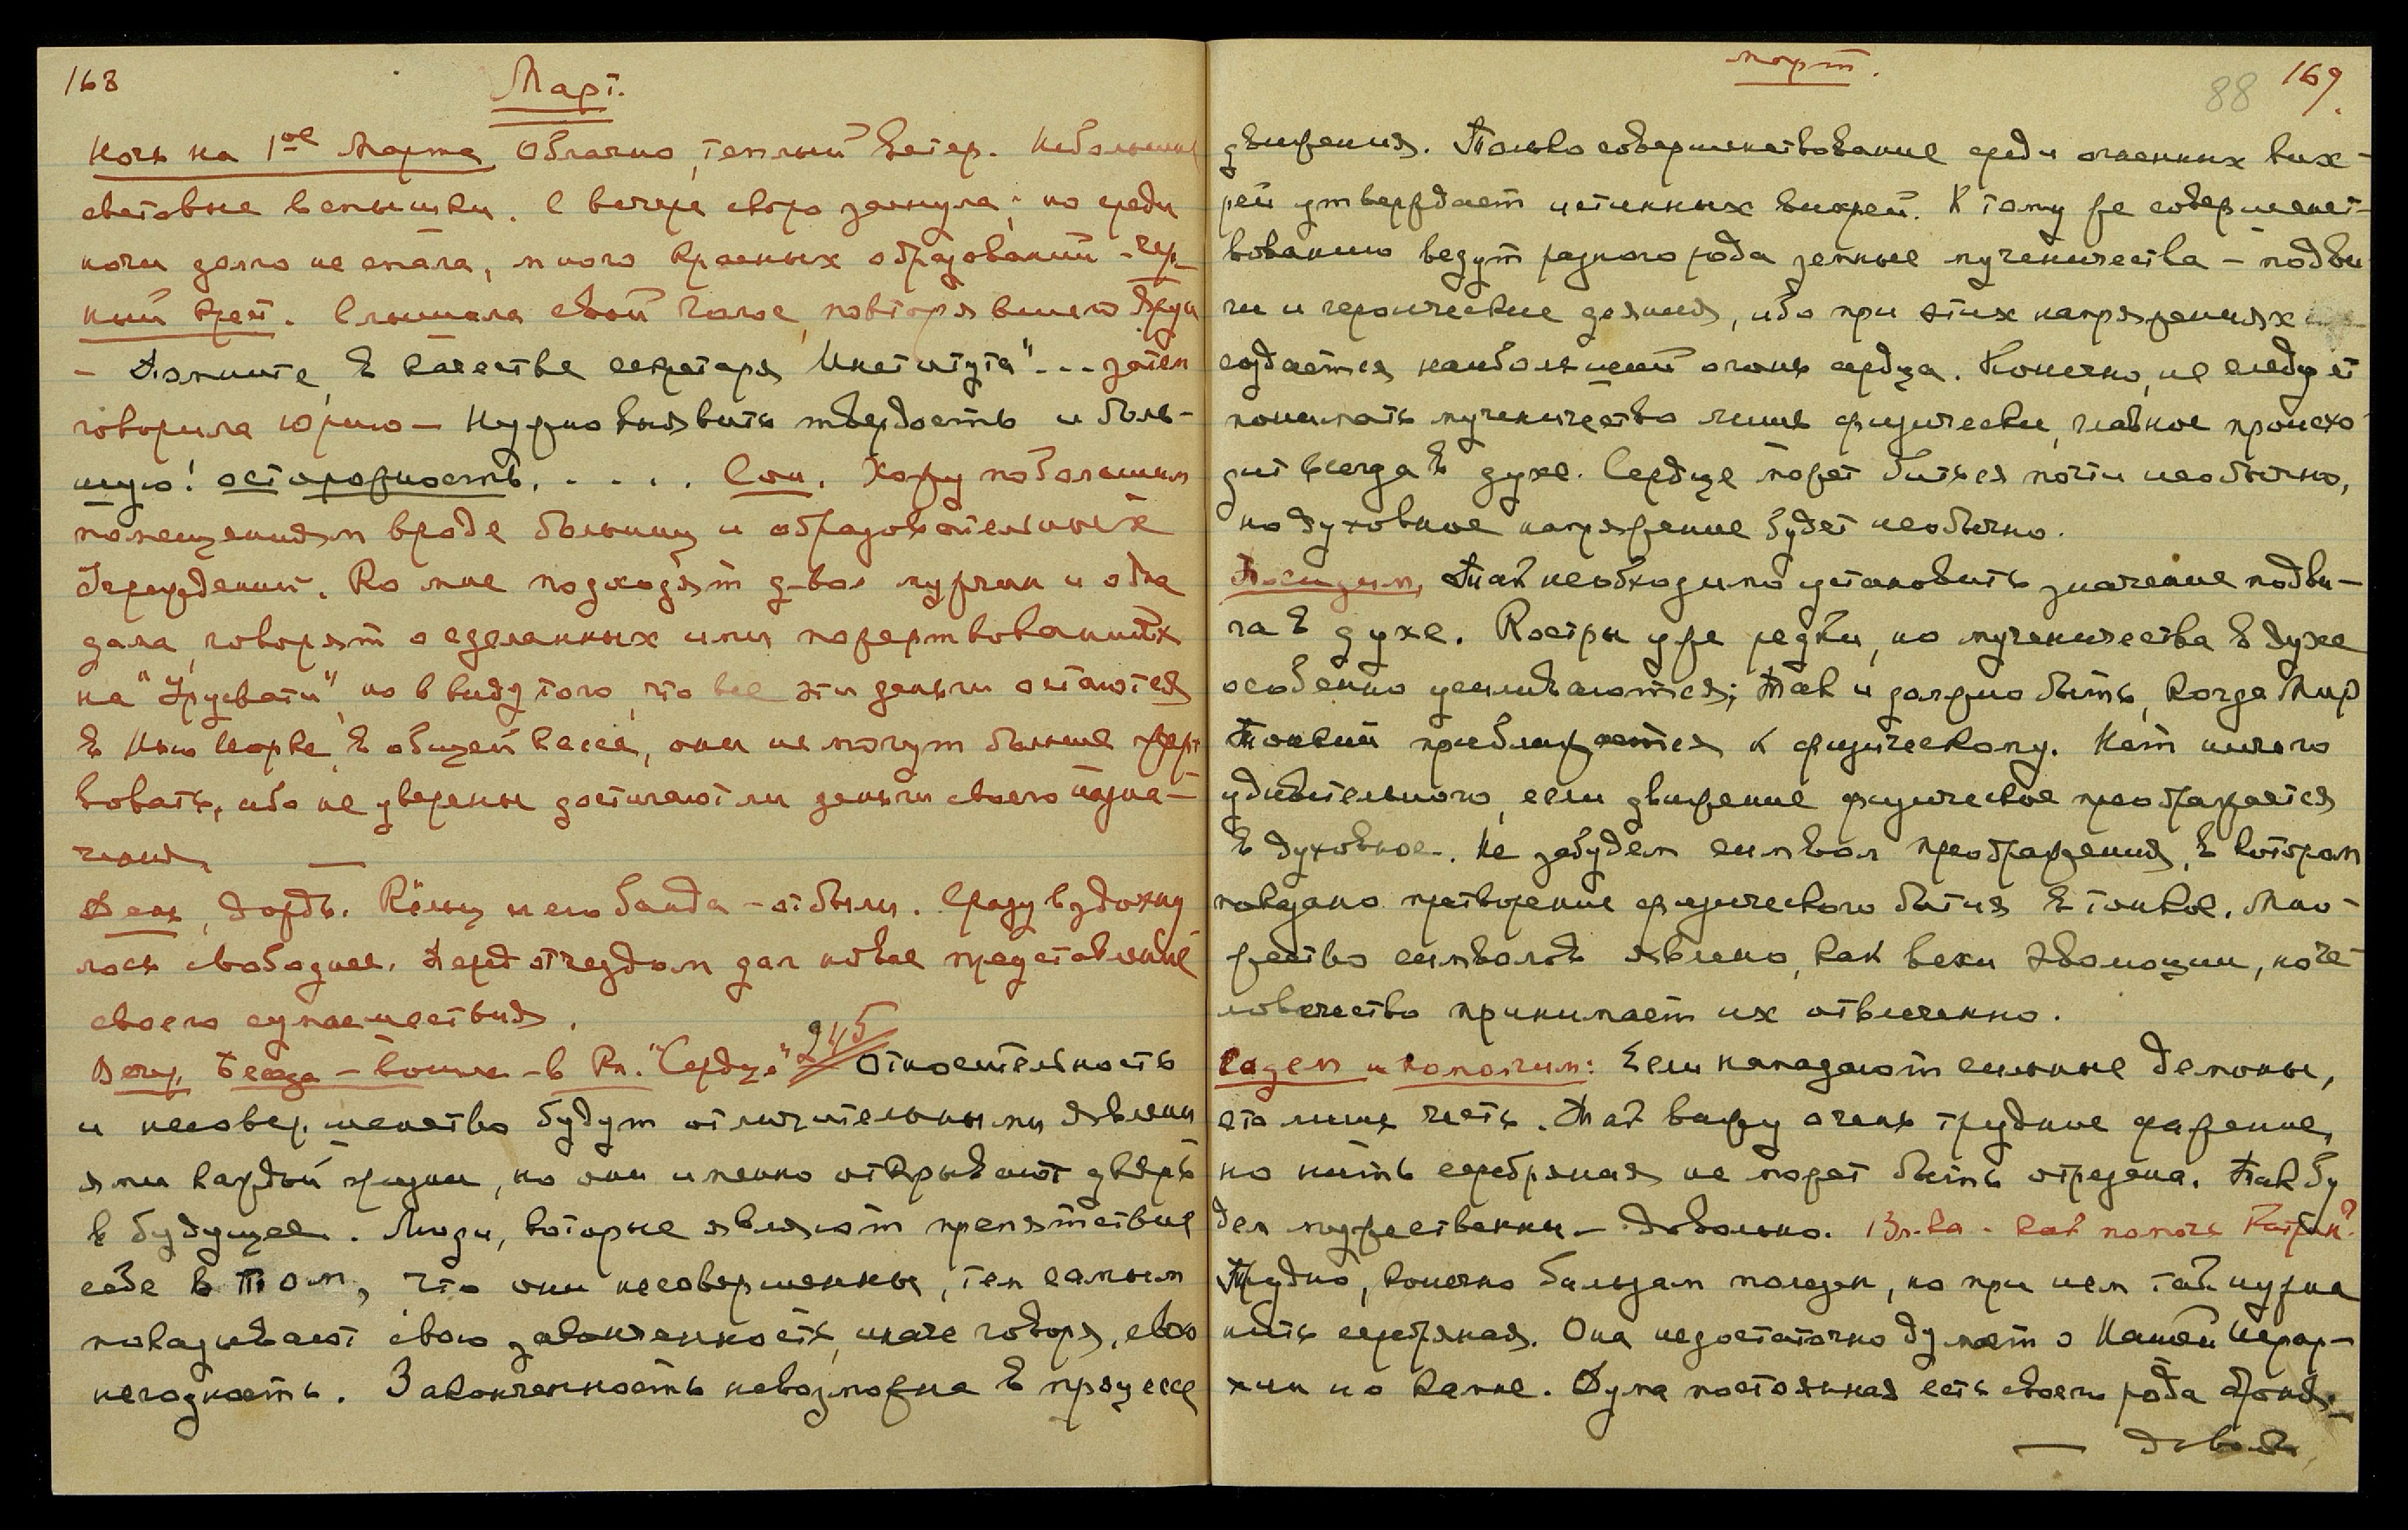 168
Март.
Ночь на 1ое Марта, Облачно, теплый ветер. Небольшие
световые вспышки. С вечера скоро заснула; но среди
ночи долго не спала, много красных образований - чер-
ный крест. Слышала свой голос, повторявшего
- Помните, в качестве секретаря Института"... затем
говорила Юрию - Нужно выявить твердость и боль-
шую! осторожность. . . . . Сон. Хожу по большим
помещениям вроде больниц и образовательных
Учреждений. Ко мне подходят двое мужчин и одна
дама, говорят о сделанных ими пожертвованиях
на "Урусвати", но в виду того, что все эти деньги остаются
в Нью Иорке, в общей кассе, они не могут больше жерт
вовать, ибо не уверены достигают ли деньги своего назна-
чения —
День, Дождь. Кёльц и его банда - отбыли. Сразу вздохну
лось свободнее. Перед отъездом дал новое представление
своего сумасшествия.
Вечер, Беседа - вошла - в Кн. "Сердце" 245 Относительность
и несовершенство будут отличительными явлени
ями каждой жизни, но они именно открывают дверь
в будущее. Люди, которые являют препятствие
себе в том, что они несовершенны, тем самым
показывают свою законченность, иначе говоря, свою
негодность. Законченность невозможна в процессе
март.
88 169.
движения. Только совершенствование среди огненных вих-
рей утверждает истинных вихрей. К тому же совершенст-
вованию ведут разного рода земные мученичества - подви
ги и героические деяния, ибо при этих напряжениях
создается наибольший огонь сердца. Конечно, не следует
понимать мученичество лишь физически, главное происхо
дит всегда в духе. Сердце может биться почти необычно,
но духовное напряжение будет необычно.
Посидим, Так необходимо установить значение подви-
га в духе. Костры уже редки, но мученичества в духе
особенно усиливаются; так и должно быть, когда Мир
Тонкий приближается к физическому. Нет ничего
удивительного, если движение физическое преображается
в духовное. Не забудем символ преображения, в котором
показано претворение физического бытия в тонкое. Мно-
жество символов явлено, как вехи эволюции, но че-
ловечество принимает их отвлеченно.
Сядем и помолчим: Если нападают сильные демоны,
это лишь честь. Так вижу очень трудные
но нить серебряная не может быть отрезана. Так бу
дем мужественны - Довольно. Вл-ка - как помочь
Трудно, конечно бальзам полезен, но при нем так нужна
нить серебряная. Она недостаточно думает о Нашей Иерар-
хии и о Камне. Дума постоянная есть своего рода броня.
— Довольно